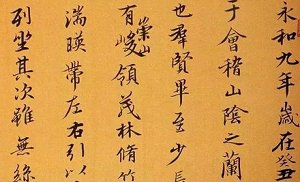 永和九年歲在癸丑
于會稽山陰之蘭
也群賢畢至少長
有崇山峻領茂林脩竹
湍暎帶左右引以
列坐其次雖無絲